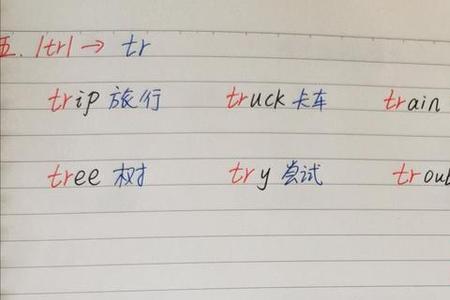 五. /tr/ → tr
trip 旅行 truck 卡车 train
tree 树 try 尝试